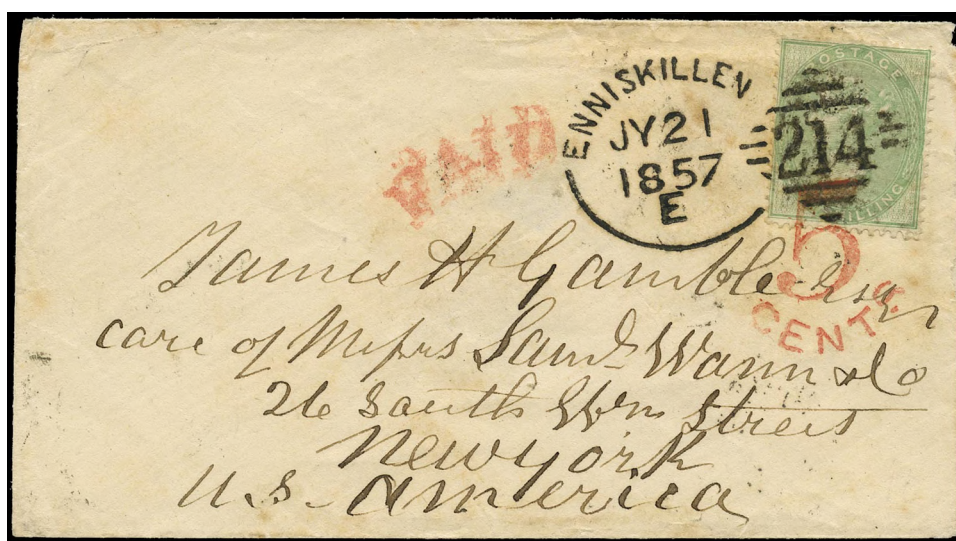 ENNISKILLEN
JY 21
1857
E
POSTAGE
214
SHILLING
PAID
5
CENTS
James H Gamble Esqr
care of Messrs Saml Wann & Co
26 South Wm Street
New York
U.S. America